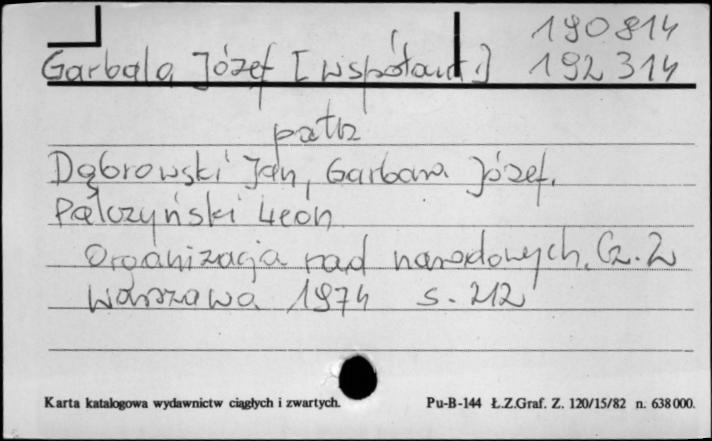 190814
Garbala Józef [współaut.] 192314
patrz
Dąbrowski Jan, Garbala Józef.
Pałczyński Leon
Organizacja rad narodowych. Cz. 2
Warszawa 1974 s. 212
Karta katalogowa wydawnictw ciągłych i zwartych. Pu-B-144 Ł.Z.Graf. Z. 120/15/82 n. 638000.